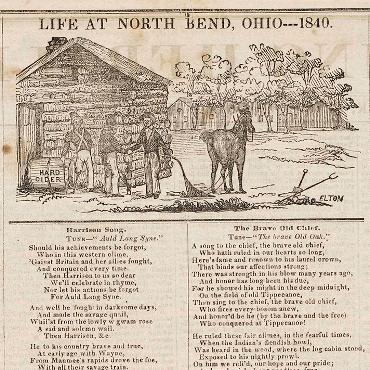 LIFE AT NORTH BEND, OHIO---1840.
HARD
CIDER
ELTON
Harrison Song.
TUNE—"Auld Lang Syne."
Should his achievements be forgot,
Who in this western clime,
'Gainst Britain and her allies fought,
And conquered every time.
Then Harrison to us so dear
We'll celebrate in rhyme,
Nor let his actions be forgot
For Auld Lang Syne.
And well he fought in darksome days,
And made the savage quail,
Whilst from the lowly wigwam rose
A sad and solemn wail.
Then Harrison, &c.
He to his country brave and true,
At early age with Wayne,
From Maumee's rapids drove the foe,
With all their savage train.
The Brave Old Chief.
TUNE—"The brave Old Oak."
A song to the chief, the brave old chief,
Who hath ruled in our hearts so long,
Here's fame and renown to his aged crown,
That binds our affections strong;
There was strength in his blow many years ago,
And honor has long been his due,
For he showed his might in the deep midnight,
On the field of old Tippecanoe,
Then sing to the chief, the brave old chief,
Who fires every bosom anew,
And honor'd be he (by the brave and the free)
Who conquered at Tippecanoe!
He ruled these fair climes, in the fearful times,
When the Indian's fiendish howl,
Was heard in the wood, where the log cabin stood,
Exposed to his nightly prowl.
On him we reli'd, our hope and our pride;